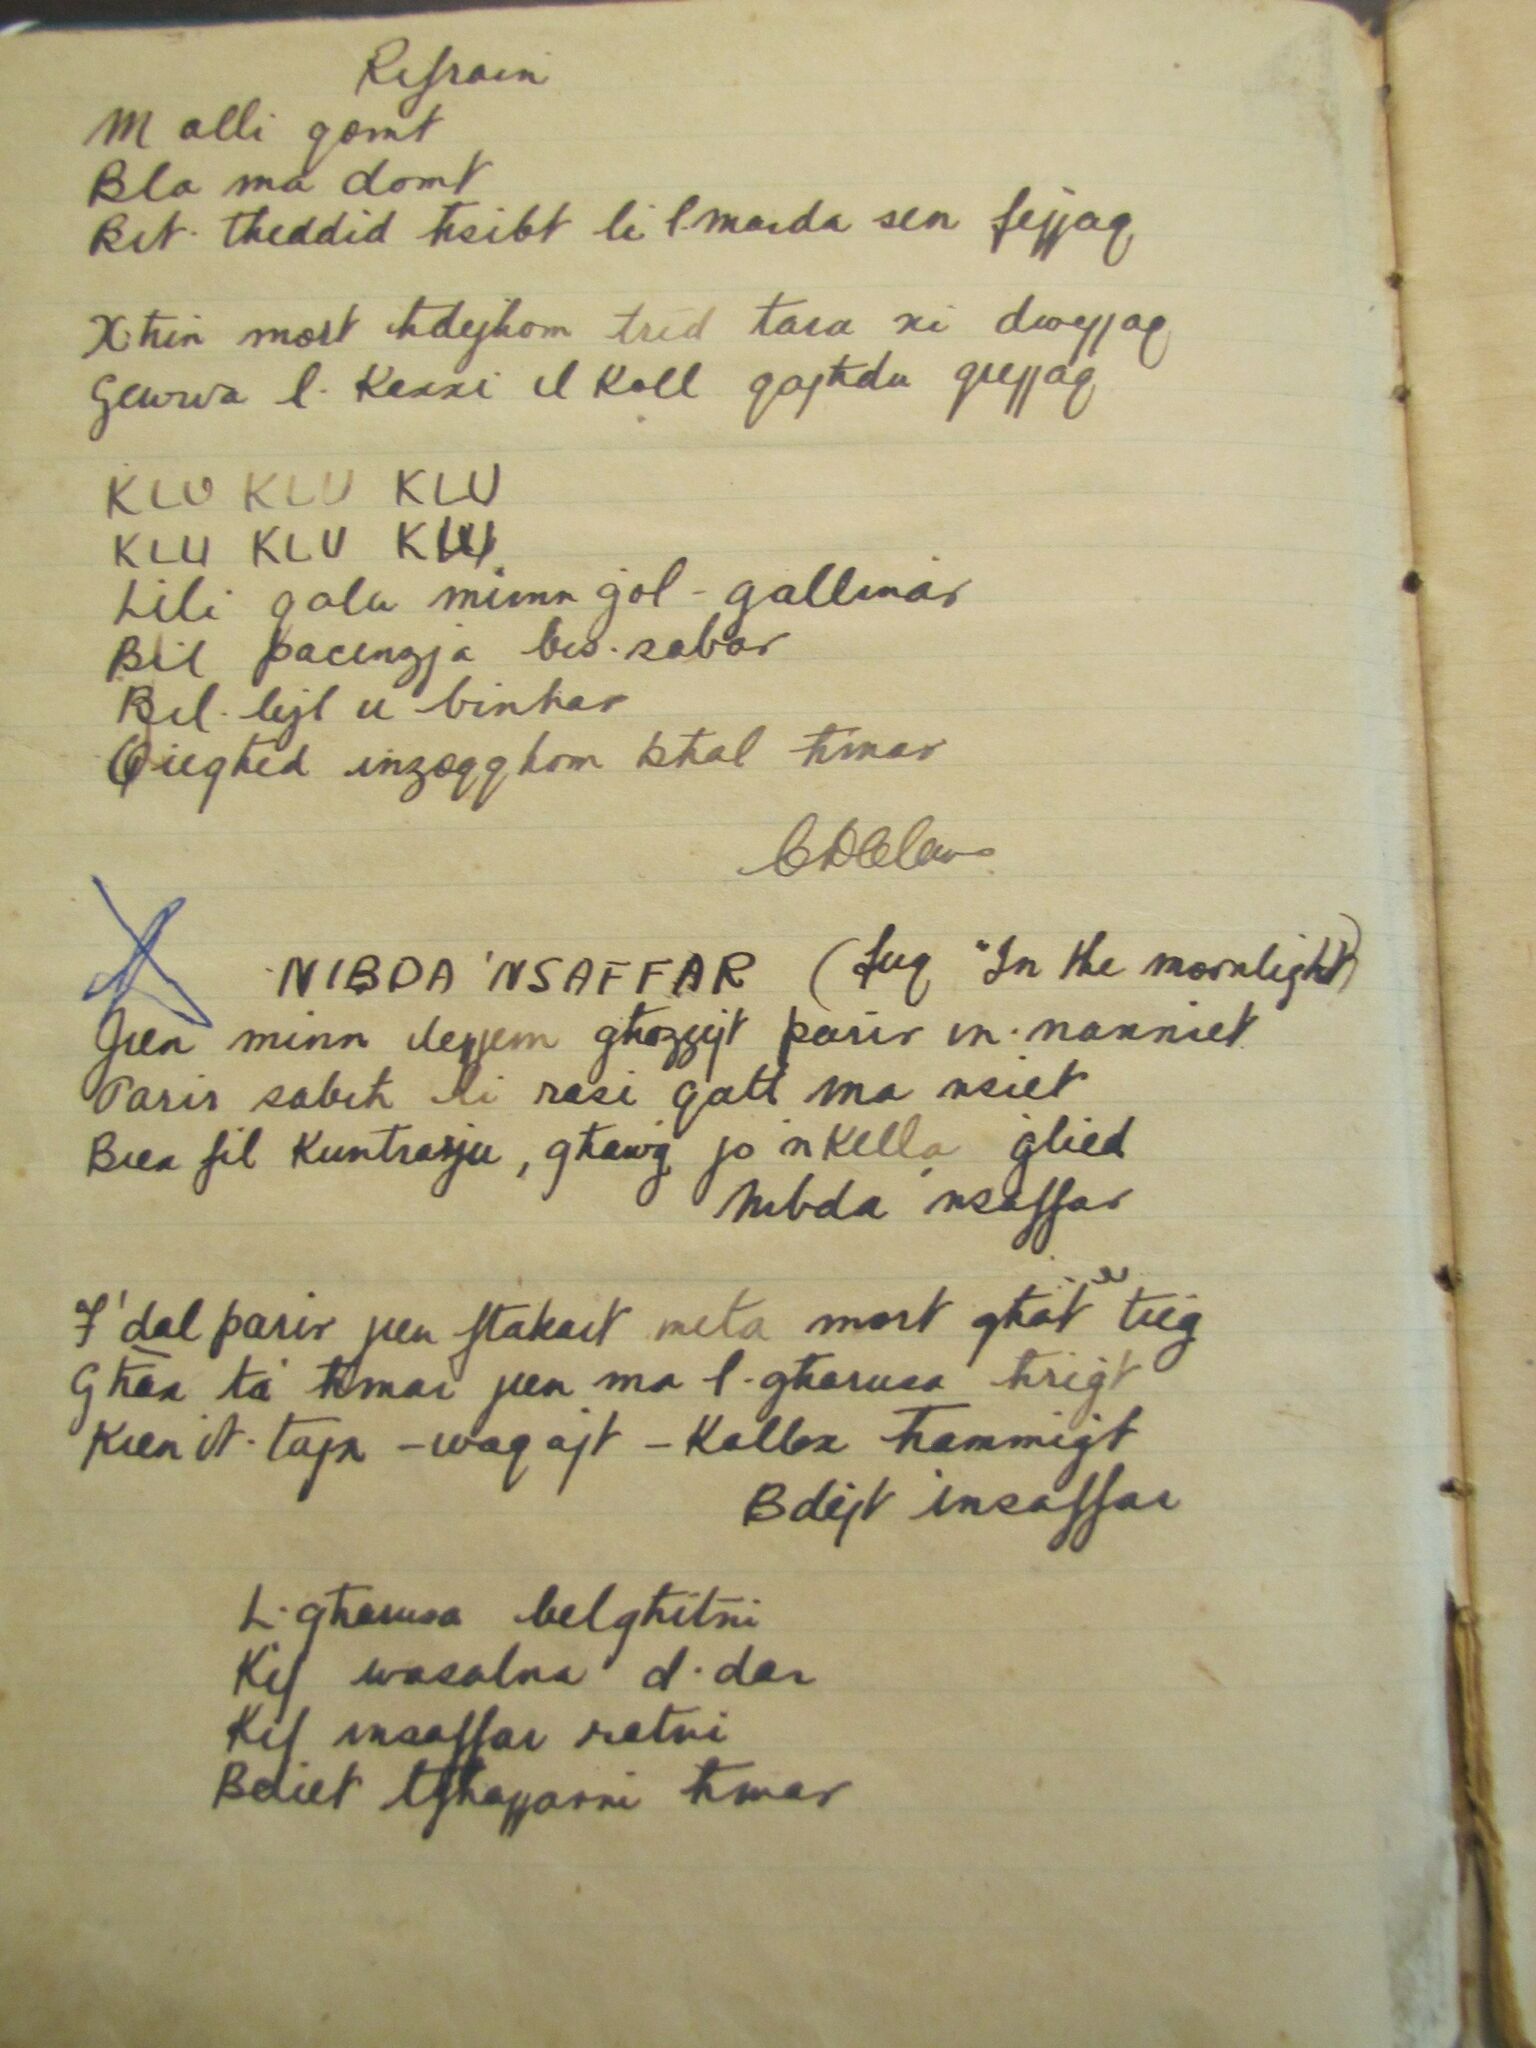 Refrain
M'alli qomt
Bla ma domt
Bit-theddid ħsibt li l-marda sen fejjaq
X'ħin mort ħdejhom trid tara xi dwejjaq
Ġewwa l-kaxxi il koll qajħdu qrejjaq
KLU KLU KLU
KLU KLU KLU
Lili qalu minn ġol-gallinar
Bil pacenzja bis-sabar
Bil-lejl u binhar
Qieghed inżoqqhom bħal ħmar
NIBDA 'NSAFFAR (fuq "In the moonlight")
Jien minn dejjem għożżejt parir in-nanniet
Parir sabiħ li rasi qatt ma nsiet
Biex fil kuntrarju, għawġ jo nkella ġlied
Nibda 'nsaffar
F'dal parir jien ftakart meta mort għat tieġ
Għax ta ħmar jien ma l-għarusa ħriġt
Kien it-tajn - waqajt - kollox ħammiġt
Bdejt insaffar
L-għarusa belgħitni
Kif wasalna d-dar
Kif insaffar ratni
Bdiet tgħajjarni ħmar